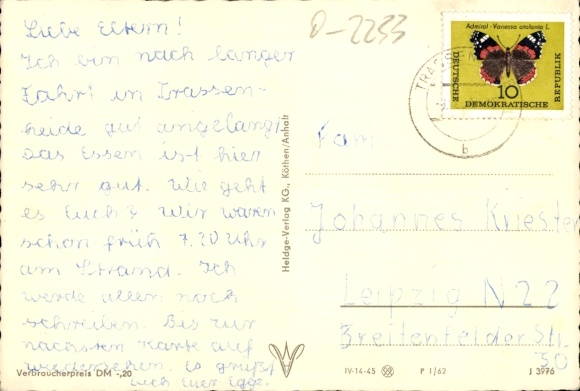 D-2233
Liebe Eltern!
Ich bin nach langer
Fahrt in Trassen-
heide gut angelangt.
Das Essen ist hier
sehr gut. Wie geht
es Euch? Wir waren
schon früh 7.20 Uhr
am Strand. Ich
werde allen noch
schreiben. Bis zur
nächsten Karte auf
wiedersehen. Es grüßt
Euch
Verbraucherpreis DM -,20
Heldge-Verlag KG., Köthen/Anhalt
Admiral - Vanessa atalanta L.
DEUTSCHE
10
DEMOKRATISCHE
REPUBLIK
b
Fam.
Johannes Kriester
Leipzig N22
Breitenfelder Str.
30
IV-14-45 P 1/62 J 3976